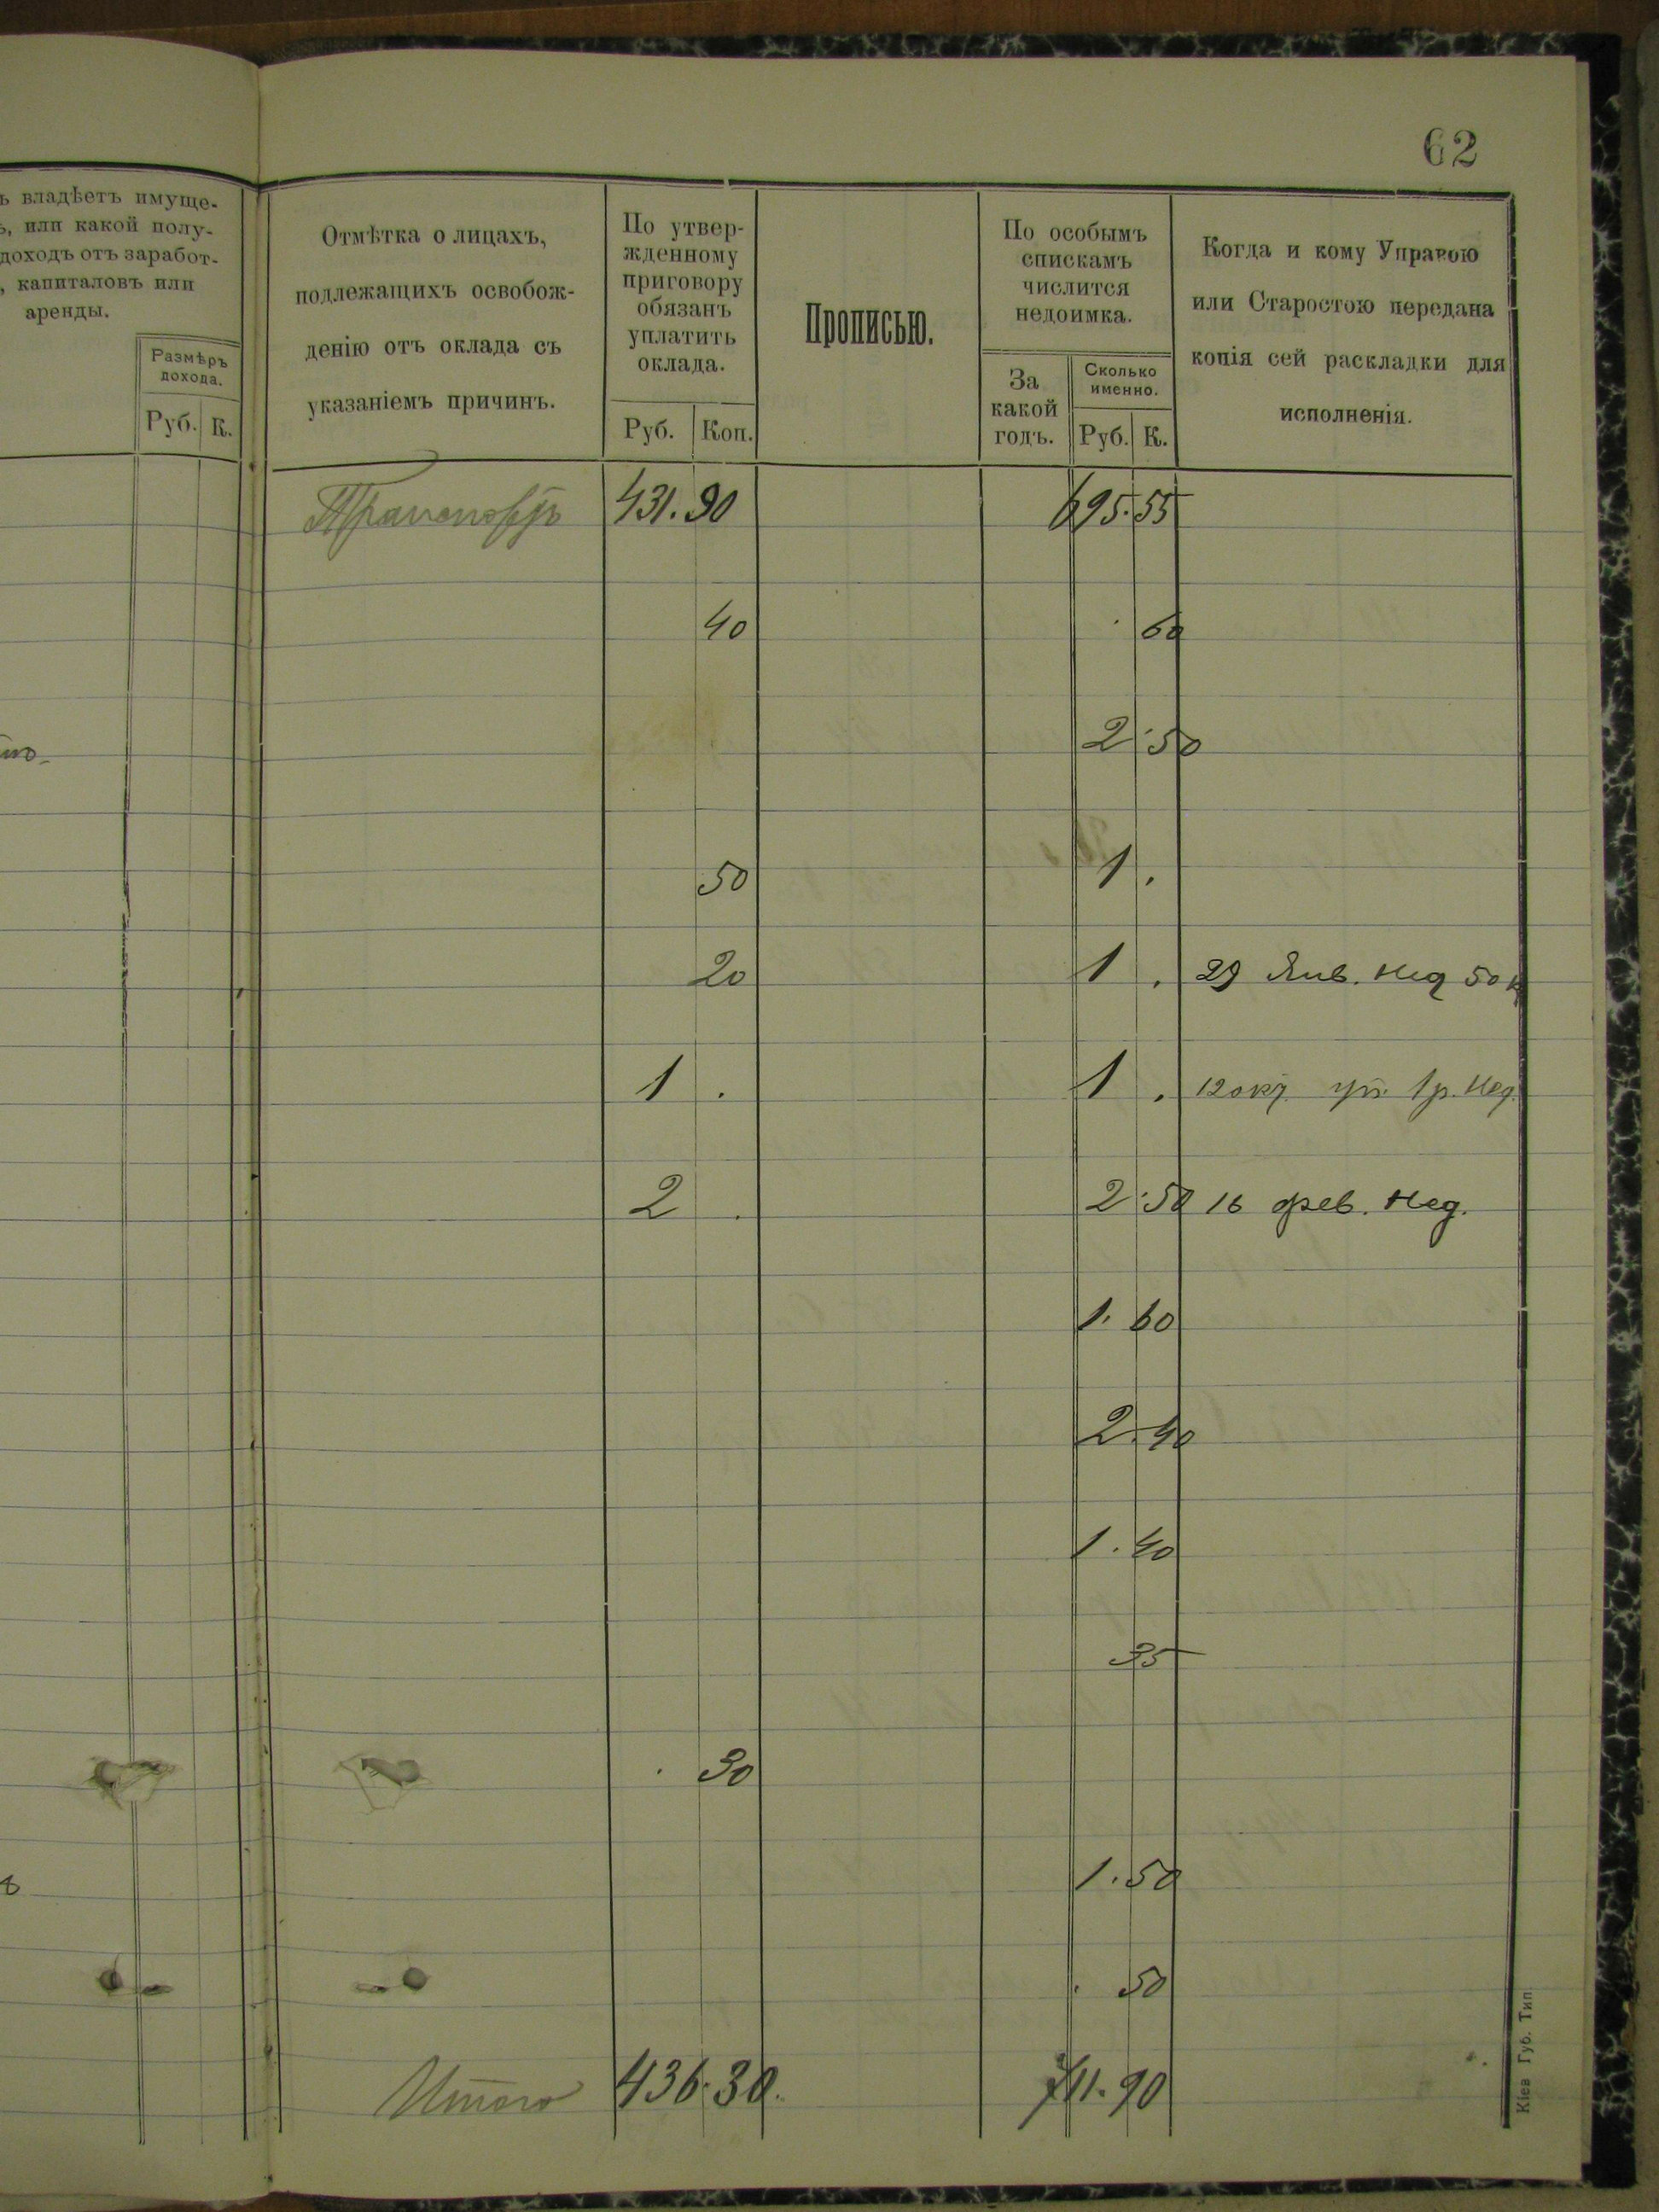 62
ъ владѣетъ имуще-
ь, или какой полу-
доходъ отъ заработ-
, капиталовъ или
аренды.
Размѣръ
дохода.
Руб. К.
Отмѣтка о лицахъ,
подлежащихъ освобож-
денію отъ оклада съ
указаніемъ причинъ.
По утвер-
жденному
приговору
обязанъ
уплатить
оклада.
Руб. Коп.
Прописью.
По особымъ
спискамъ
числится
недоимка.
За
какой
годъ.
Сколько
именно.
Руб. К.
Когда и кому Управою
или Старостою передана
копія сей раскладки для
исполненія.
Транспортъ 431.90 695.55
40 60
2.50
50 1 .
20 1 . 29 Янв. Нед 50 к
1 . 1 . 12 окт. 1р. Нед.
2 . 2.50 16 фев. Нед.
1.60
2.40
1.40
35
. 30
1.50
. 50
Итого 436.30. 711.90
Кіев Губ. Тип.